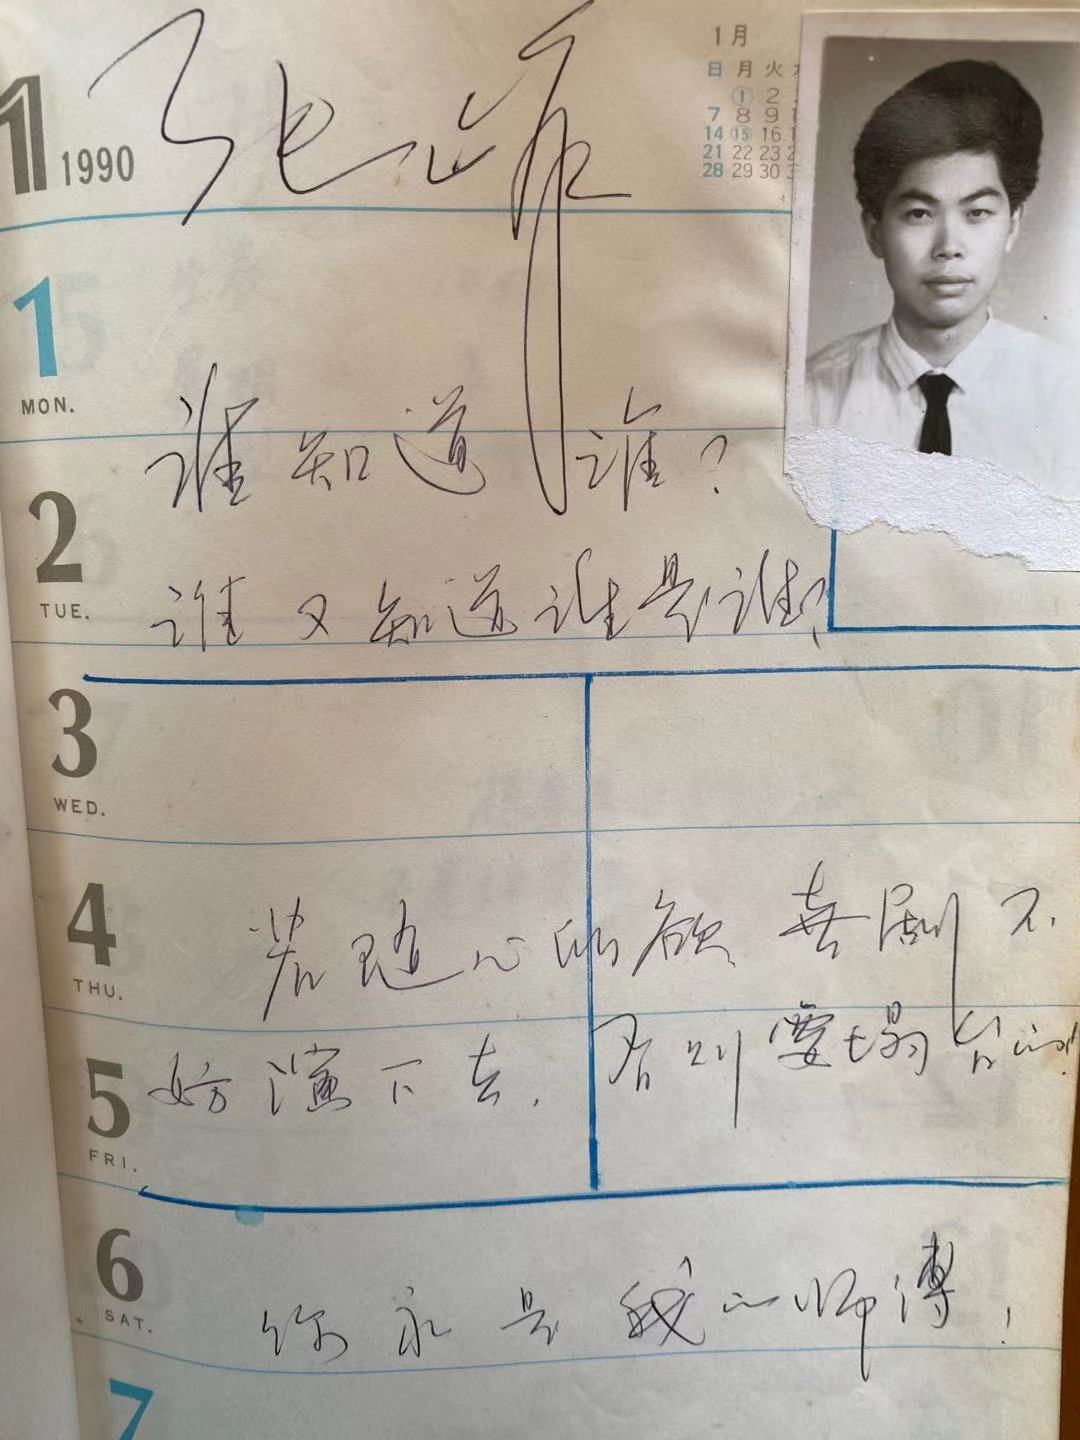 1 1990
1月
日 月 火
1 2
7 8 9
14 15 16
21 22 23
28 29 30
1 MON.
谁知道谁？
2 TUE.
谁又知道谁是谁？
3 WED.
4 THU.
若随心所欲 喜剧不
5 FRI.
好演下去. 否则要塌台的!
6 SAT.
你永是我的师傅!
7